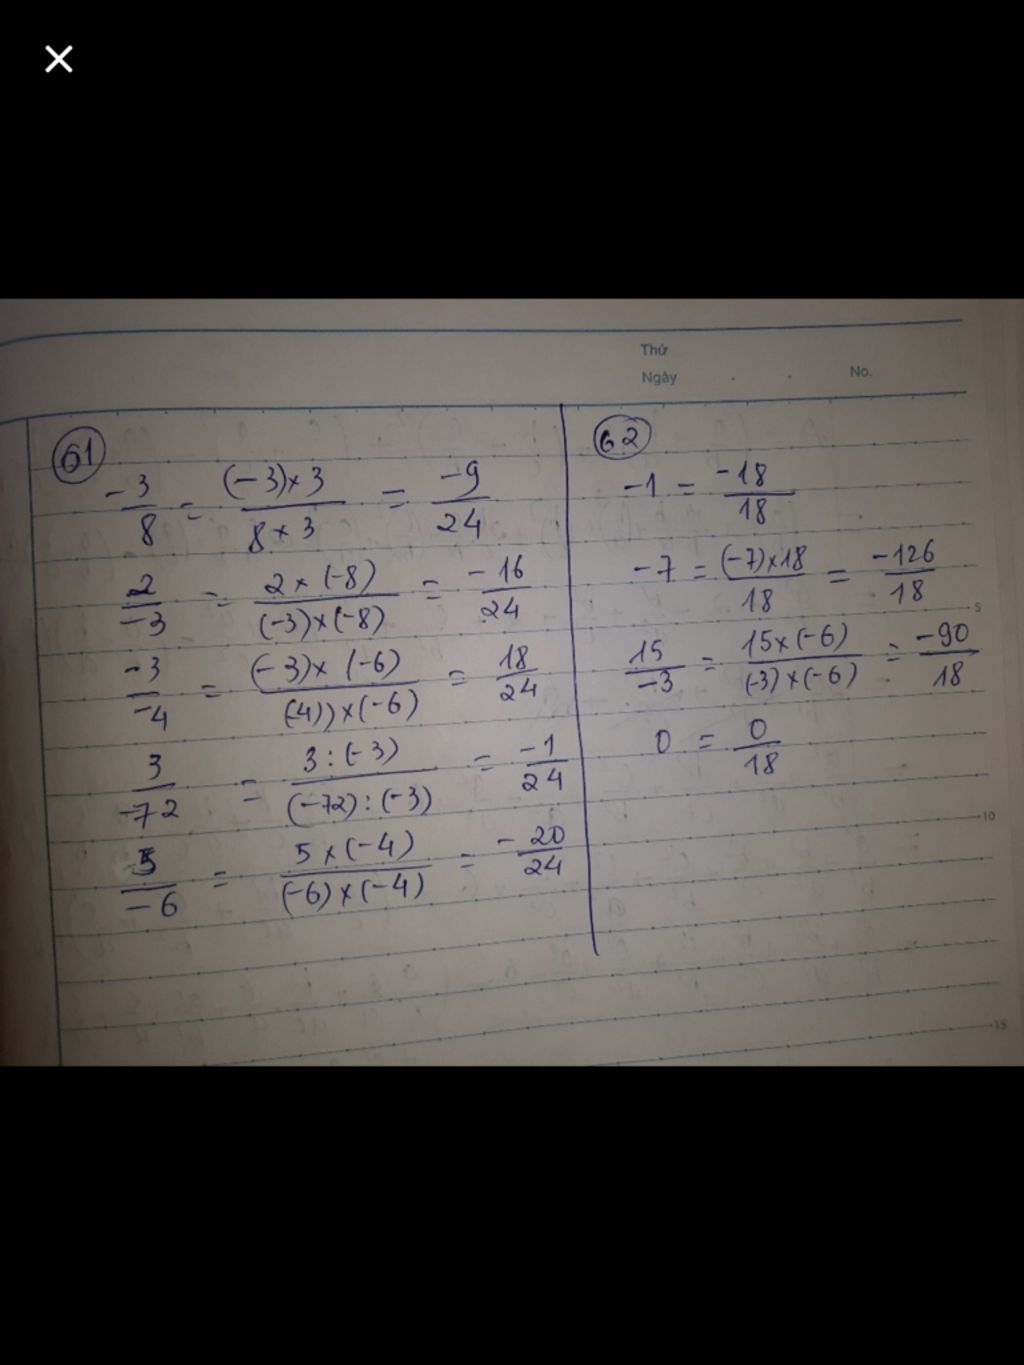 Thứ
Ngày . . No.
61
-3/8 = (-3)×3/8×3 = -9/24
2/-3 = 2×(-8)/(-3)×(-8) = -16/24
-3/-4 = (-3)×(-6)/(-4))×(-6) = 18/24
3/-72 = 3:(-3)/(-72):(-3) = -1/24
5/-6 = 5×(-4)/(-6)×(-4) = -20/24
62
-1 = -18/18
-7 = (-7)×18/18 = -126/18
15/-3 = 15×(-6)/(-3)×(-6) = -90/18
0 = 0/18
5
10
15